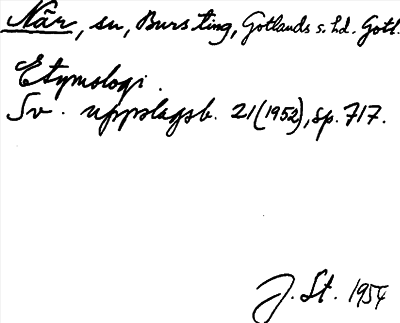 När, sn, Burs ting, Gotlands s. hd. Gotl.
Etymologi.
Sv. uppslagsb. 21(1952), sp. 717.
J. St. 1954